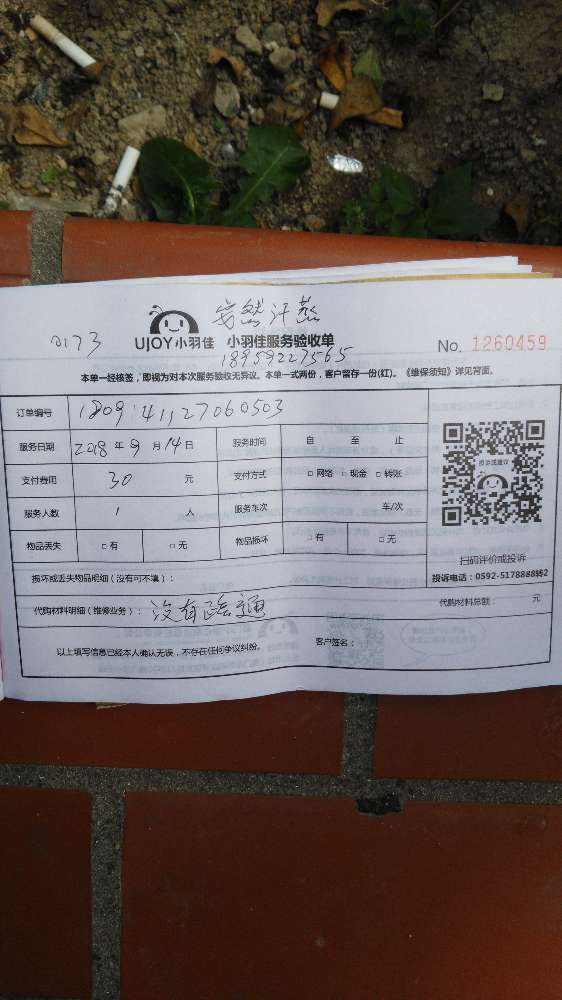 安然汗蒸
0173
UJOY小羽佳 小羽佳服务验收单 No. 1260459
18959227565
本单一经核签，即视为对本次服务验收无异议。本单一式两份，客户留存一份(红)。《维保须知》详见背面。
订单编号 1809141127060503
服务日期 2018 年 9 月 14 日 服务时间 自 至 止
支付费用 30 元 支付方式 □网络 □现金 □转账
服务人数 1 人 服务车次 车/次
物品丢失 □有 □无 物品损坏 □有 □无
扫码评价或投诉
投诉电话：0592-5178888转2
损坏或丢失物品明细（没有可不填）：
代购材料明细（维修业务）： 没有疏通 代购材料总额： 元
以上填写信息已经本人确认无误，不存在任何争议纠纷。 客户签名：